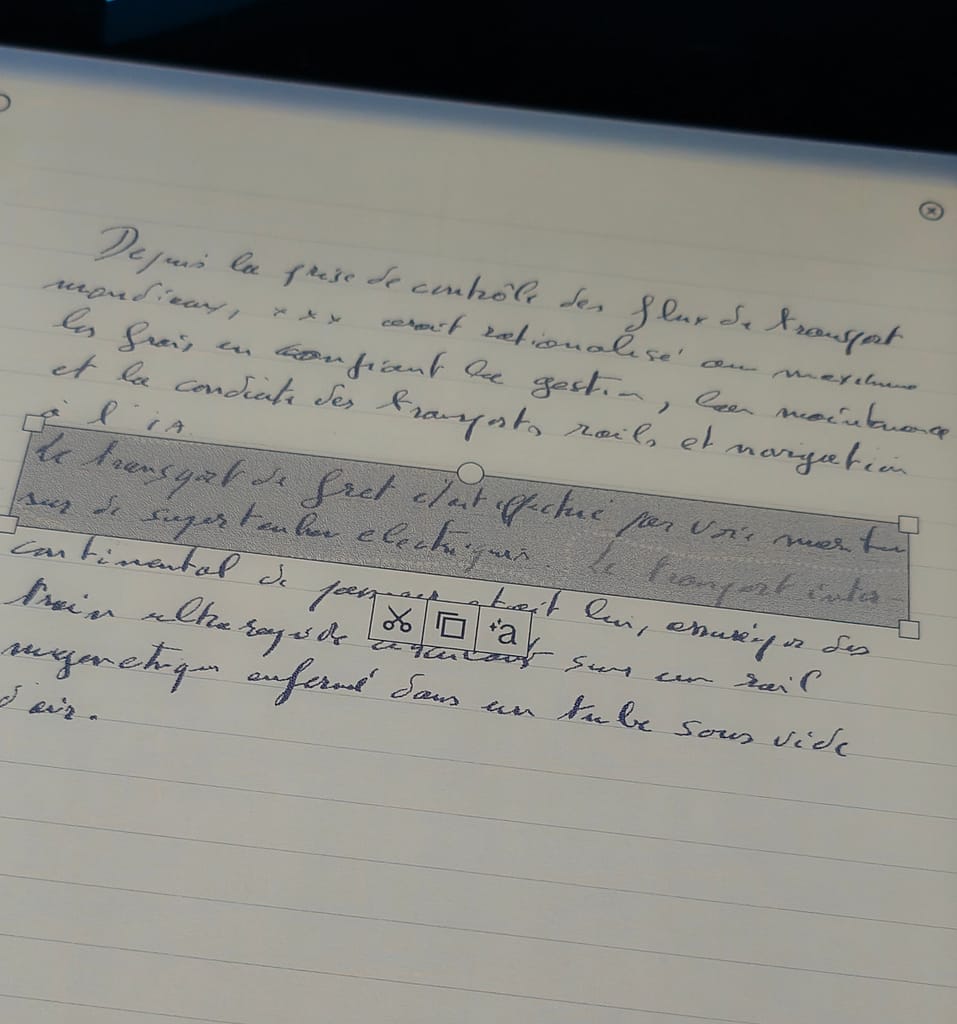 Depuis la prise de contrôle des flux de transport
mondiaux, xxx avait rationalisé au maximum
les frais en confiant la gestion, la maintenance
et la conduite des transports rails et navigation
à l'iA
Le transport de fret était effectué par voie maritime
sur de supertanker electriques. Le transport inter-
continental de était lui, assuré par des
train ultra rapide sur un rail
magnetique enfermé dans un tube sous vide
d'air.
a